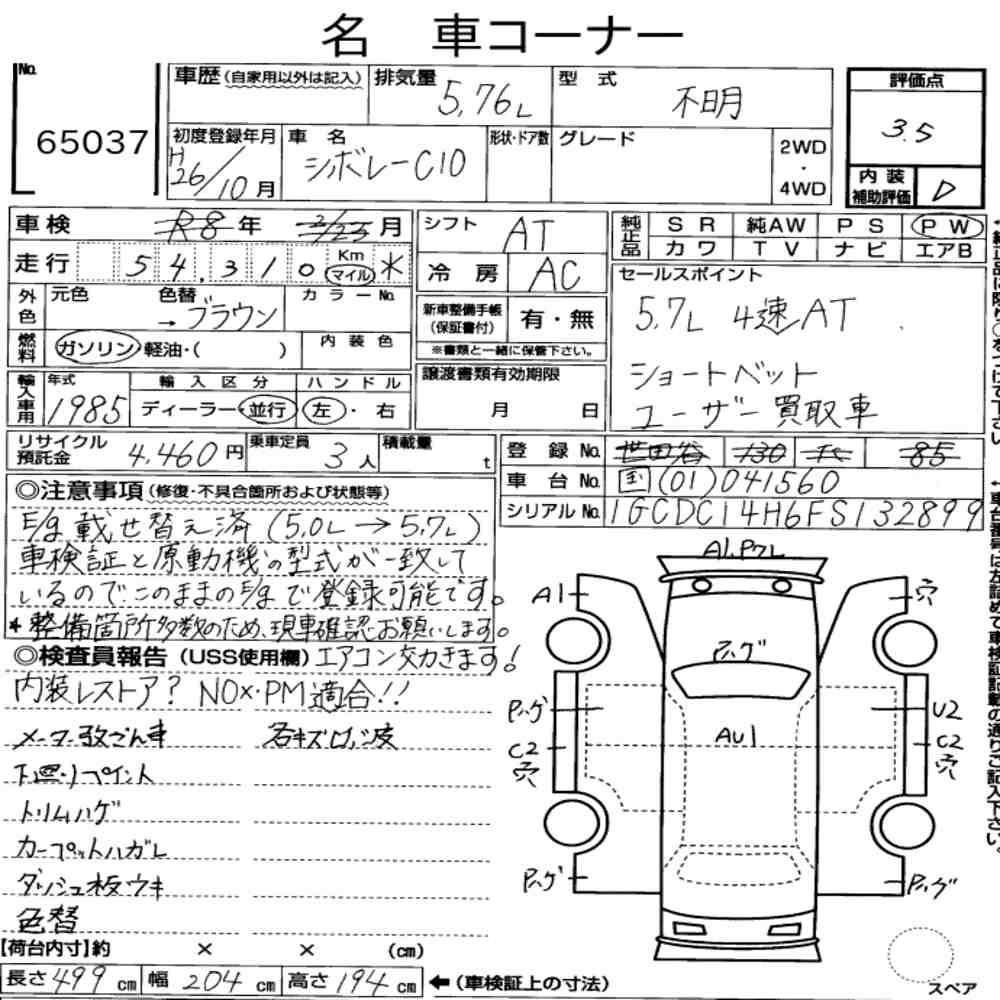 名 車コーナー
No.
65037
車歴 (自家用以外は記入)
排気量
5,76L
型式
不明
評価点
3.5
初度登録年月
H26/10月
車名
シボレーC10
形状・ドア数
グレード
2WD
・
4WD
内装
補助評価
D
車検
R8年 2/23月
シフト
AT
純正品
SR 純AW PS PW
カワ TV ナビ エアB
走行
54,310
Km
マイル
※
冷房
AC
セールスポイント
5,7L 4速AT
ショートベット
ユーザー買取車
外色
元色 色替
→ブラウン
カラーNo.
新車整備手帳
(保証書付)
有・無
※書類と一緒に保管下さい。
燃料
ガソリン・軽油・( )
内装色
譲渡書類有効期限
月 日
輸入車用
年式
1985
輸入区分
ディーラー・並行
ハンドル
左・右
リサイクル
預託金
4,460円
乗車定員
3人
積載量
t
登録No.
世田谷 130 85
車台No.
国(01)041560
シリアルNo.
1GCDC14H6FS132899
◎注意事項(修復・不具合箇所および状態等)
E/g載せ替え済(5,0L→5,7L)
車検証と原動機の型式が一致して
いるのでこのままのE/gで登録可能です。
*整備箇所多数のため、現車確認お願いします。
◎検査員報告(USS使用欄)エアコン交力きます!
内装レストア? NOx・PM適合!!
メーター改ざん車 各キズ凹、波
下廻りペイント
トリムハゲ
カーペットハガレ
ダッシュ板ウキ
色替
A1.Pクレ
A1
穴
Pハゲ
Pハゲ
U2
AU1
C2
穴
C2
穴
Pハゲ
Pハゲ
スペア
【荷台内寸】約 × × (cm)
長さ499cm 幅204cm 高さ194cm ←(車検証上の寸法)